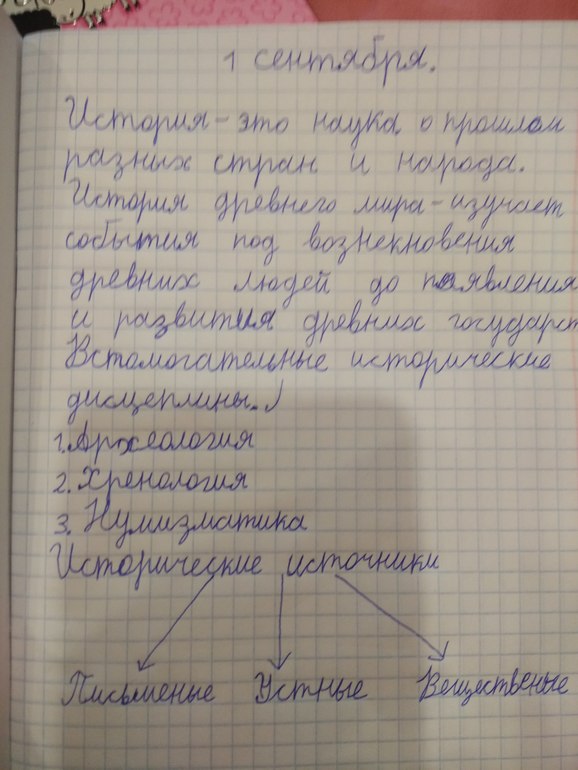 1 сентября.
История - это наука о прошлом
разных стран и народа.
История древнего мира - изучает
события под вознекновения
древних людей до паявления
и развития древних государст
Вспомогательные исторические
дисцеплины.
1. Археология
2. Хренология
3. Нумизматика
Исторические источники
Письменые Устные Вещественые